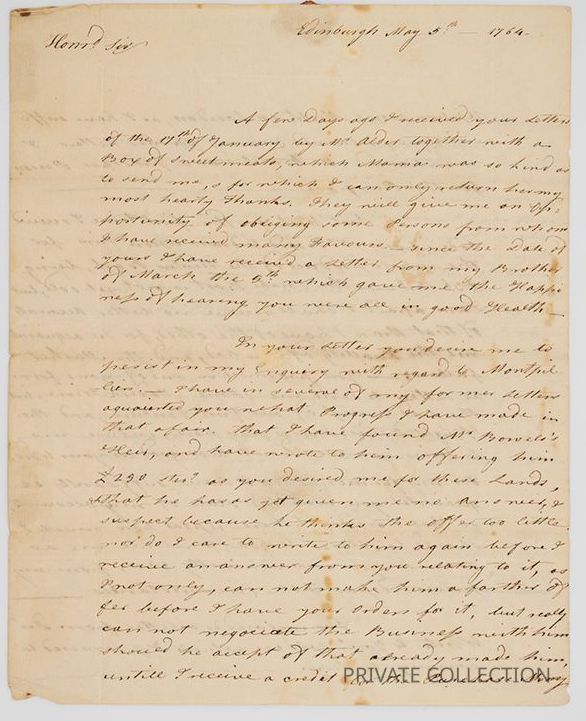 Edinburgh May 5th — 1764.
Honrd Sir
A few Days ago I received your Letter
of the 17th of January by Mr Alder together with a
Box of Sweetmeats, which Mama was so kind as
to send me, & for which I can only return her my
most hearty Thanks. They will give me an Op-
portunity of obliging some Persons from whom
I have received many Favours — since the Date of
yours I have received a Letter from my Brother
of March the 6th which gave me the Happi-
ness of hearing you were all in good Health —
In your Letter you desire me to
persist in my Enquiry with regard to Montpil-
liers. — I have in several of my former Letters
aquainted you what Progress I have made in
that afair. that I have found Mr Bowels's
Heir, and have wrote to him offering him
£290 ster. as you desired me for these Lands,
that he has as yet given me no answer, I
suspect because he thinks the offer too little
nor do I care to write to him again before I
receive an answer from you relating to it, as
I not only, can not make him a farther of-
fer before I have your Orders for it, but really
can not negociate the Business with him
should he accept of that already made him,
untill I receive a credit for the Purchase Mony
PRIVATE COLLECTION